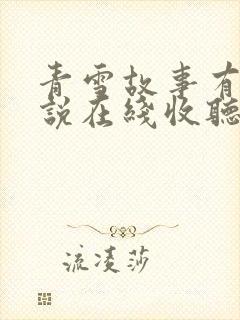 青雪故事有
説在綫收聽
流凌莎